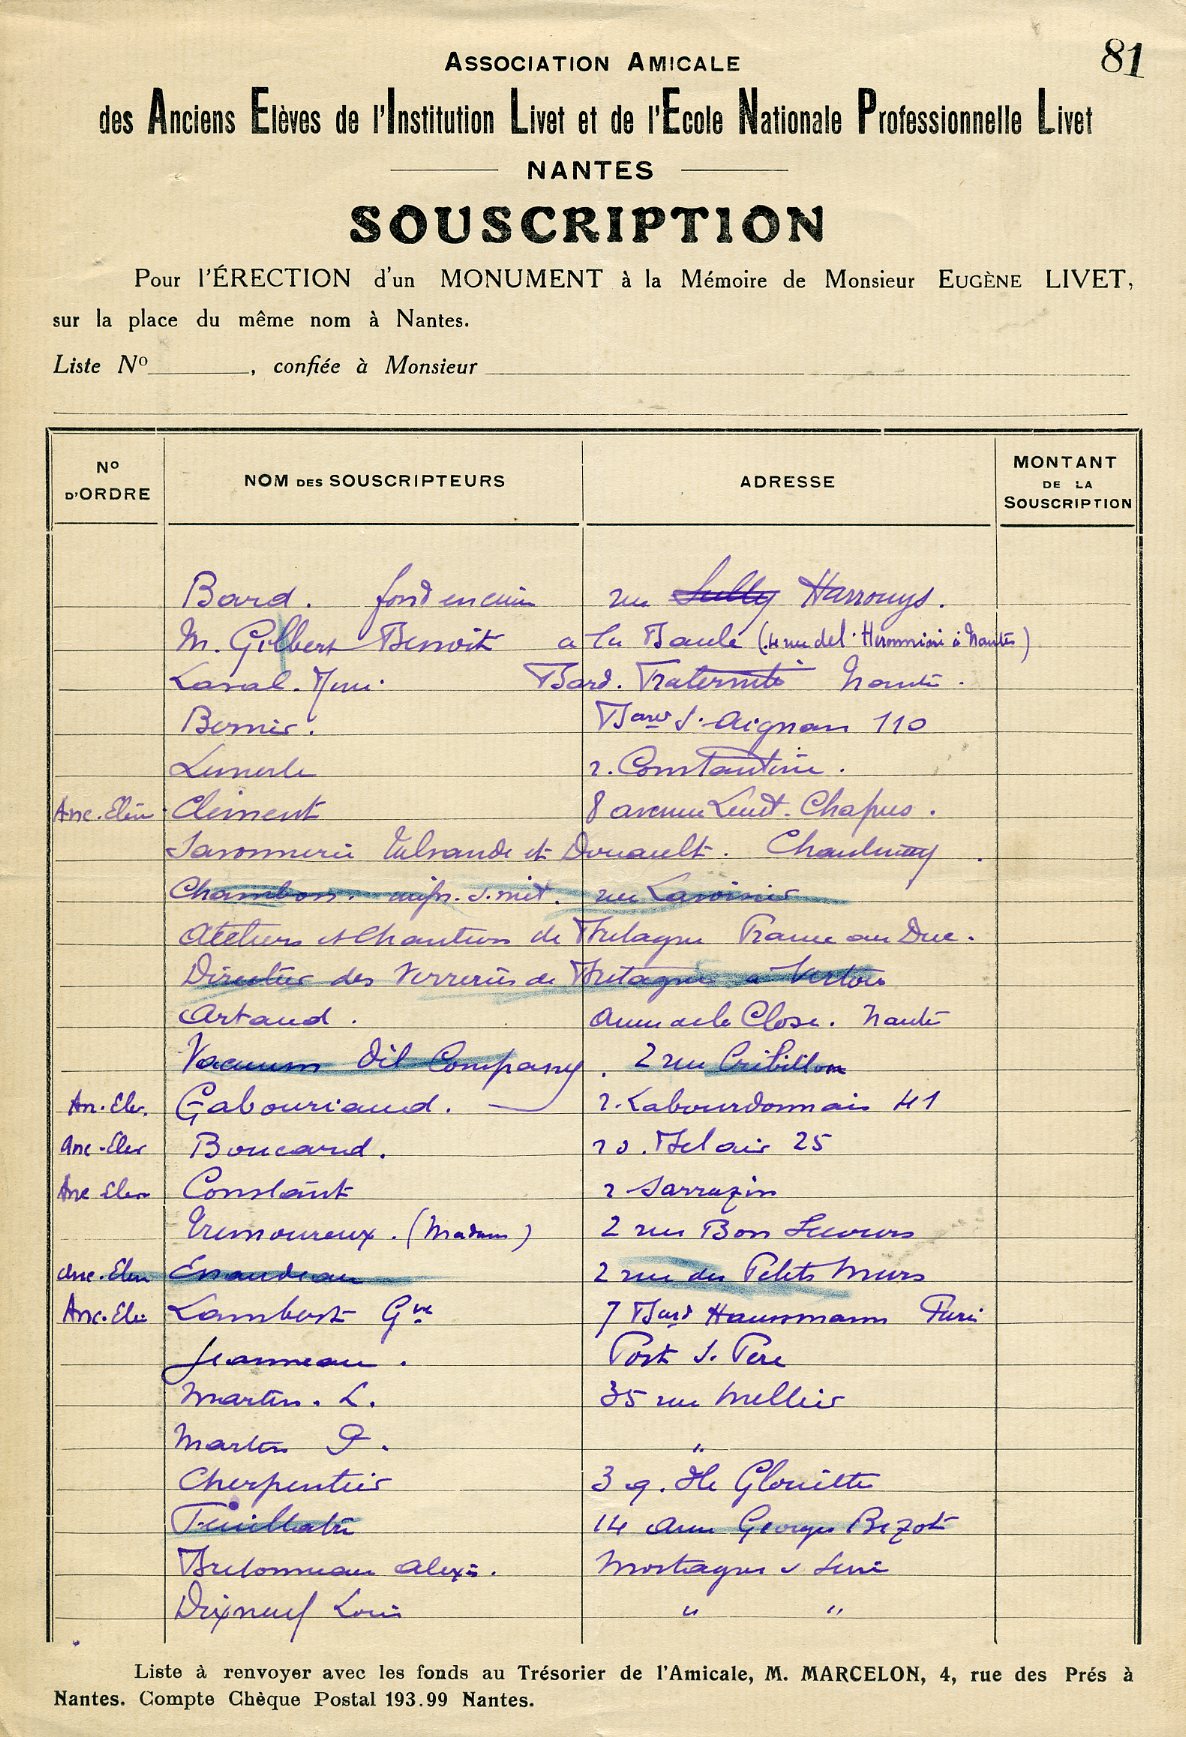 81
ASSOCIATION AMICALE
des Anciens Elèves de l'Institution Livet et de l'Ecole Nationale Professionnelle Livet
NANTES
SOUSCRIPTION
Pour l'ÉRECTION d'un MONUMENT à la Mémoire de Monsieur EUGÈNE LIVET,
sur la place du même nom à Nantes.
Liste No , confiée à Monsieur
No D'ORDRE NOM DES SOUSCRIPTEURS ADRESSE MONTANT DE LA SOUSCRIPTION
Bard. rue Sully Harrouys.
M. Gilbert Benoit a la Baule (4 rue de l'Herminier à Nantes)
Laval. Bard. Fraternité Nantes.
Bernier. Bard St. Aignan 110
r. Constantine.
Anc. Elève Clément 8 avenue Lieut. Chapus.
Savonnerie Talvande et Douault. Chantenay.
Chambon. rue Lavoisier
Ateliers et Chantiers de Bretagne Prairie au Duc.
Directeur des Verreries de Bretagne a Vertou
Artaud. Avenue de la Close. Nantes
Vacuum Oil Company. 2 rue Crébillon
An. Elv. Gabouriaud. r. Labourdonnais 41
Anc. Elev Boucard. Belair 25
Anc Elev Constant r Sarrazin
Tremoureux. (Madame) 2 rue Bon Secours
Anc. Elev 2 rue des Petits Murs
Anc. Ele Lambert Gve 7 Bard Haussmann Paris
Jeanneau. Port S. Père
Martin. L. 35 rue Mellier
Martin P. "
Cherpentier 3 q. Ile Gloriette
Feuillatre 14 Avenue Georges Bizot
Bretonneau Alexis. Mortagne s Sèvre
Dixneuf Louis " "
Liste à renvoyer avec les fonds au Trésorier de l'Amicale, M. MARCELON, 4, rue des Prés à
Nantes. Compte Chèque Postal 193.99 Nantes.